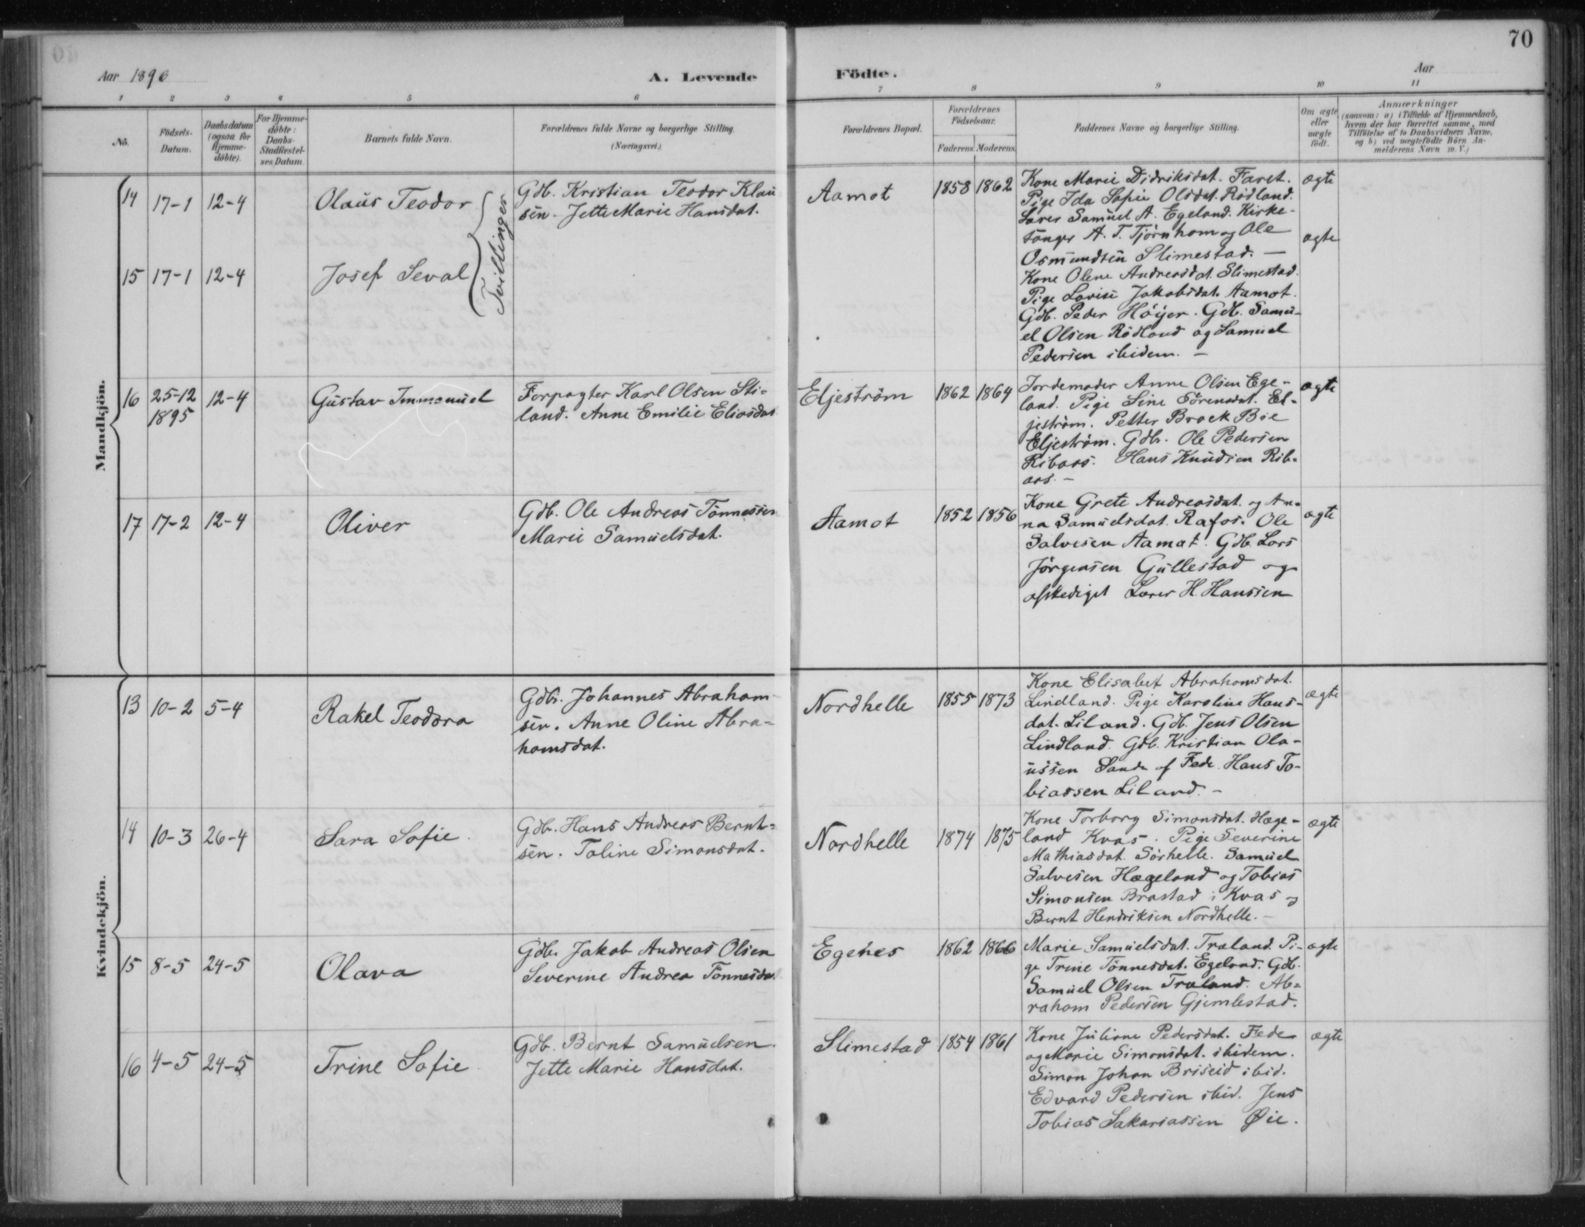 70
Aar 1896
A. Levende
Födte.
Aar
1 2 3 4 5 6 7 8 9 10 11
No.
Födsels-
Datum.
Daabsdatum
(ogsaa for
Hjemme-
døbte).
For Hjemme-
døbte:
Daabs-
Stadfæstel-
ses Datum.
Barnets fulde Navn.
Forældrenes fulde Navne og borgerlige Stilling.
(Næringsvei.)
Forældrenes Bopæl.
Forældrenes
Fødselsaar.
Faderens. Moderens.
Faddernes Navne og borgerlige Stilling.
Om ægte
eller
uægte
født.
Anmærkninger
(saasom: a) i Tilfælde af Hjemmedaab,
hvem der har forrettet samme, med
Tilføielse af to Daabsvidners Navne,
og b) ved uægtefødte Børn An-
melderens Navn m. V.)
Mandkjön.
14 17-1 12-4 Olaus Teodor
Tvillinger
Gdb. Kristian Teodor Klau
sen. Jette Marie Hansdat.
Aamot 1858 1862
Kone Marie Didriksdat. Faret.
Pige Ida Sofie Olsdat. Rødland.
Lærer Samuel A. Egeland. Kirke-
sanger A. T. Tjørnhom og Ole
Osmundsen Slimestad. —
ægte
15 17-1 12-4 Josef Seval
Kone Olene Andreasdat. Slimestad.
Pige Lovise Jakobsdat. Aamot.
Gdb. Peder Höyer. Gdb. Samu-
el Olsen Rödland og Samuel
Pedersen ibidem. —
ægte
16 25-12
1895 12-4 Gustav Immanuel
Forpagter Karl Olsen Sti-
land. Anne Emilie Eliasdat
Eljeström 1862 1869
Jordemoder Anne Olsen Ege-
land. Pige Sine Sörensdat. El-
jeström. Petter Brock Böe
Eljeström. Gdb. Ole Pedersen
Ribaas. Hans Knudsen Rib-
aas. —
ægte
17 17-2 12-4 Oliver
Gdb. Ole Andreas Tönnessen
Marie Samuelsdat.
Aamot 1852 1856
Kone Grete Andreasdat. og An-
na Samuelsdat. Rafos. Ole
Salvesen Aamot. Gdb. Lars
Jörgensen Gullestad og
afskediget Lærer H Hanssen
ægte
Kvindekjön.
13 10-2 5-4 Rakel Teodora
Gdb. Johannes Abraham-
sen. Anne Oline Abra-
hamsdat.
Nordhelle 1855 1873
Kone Elisabet Abrahamsdat.
Lindland. Pige Karoline Hans-
dat. Liland. Gdb. Jens Olsen
Lindland. Gdb. Kristian Ola-
ussen Sande af Fede. Hans To-
biassen Liland. —
ægte
14 10-3 26-4 Sara Sofie.
Gdb. Hans Andreas Bernt-
sen. Taline Simonsdat.
Nordhelle 1874 1875
Kone Torborg Simonsdat. Hæge-
land Kvas. Pige Severine
Mathiasdat. Sörhelle. Samuel
Salvesen Hægeland og Tobias
Simonsen Brastad i Kvas og
Bernt Henriksen Nordhelle. —
ægte
15 8-5 24-5 Olava
Gdb. Jakob Andreas Olsen
Severine Andrea Tönnesdat
Egenes 1862 1866
Marie Samuelsdat. Træland. Pi-
ge Trine Tönnesdat. Egeland. Gdb.
Samuel Olsen Træland. Ab-
raham Pedersen Gjemlestad.
ægte
16 4-5 24-5 Trine Sofie
Gdb. Bernt Samuelsen.
Jette Marie Hansdat.
Slimestad 1854 1861
Kone Juliane Pedersdat. Fede
og Marie Simonsdat. ibidem.
Simon Johan Briseid ibid.
Edvard Pedersen ibid. Jens
Tobias Sakariassen Øie.
ægte